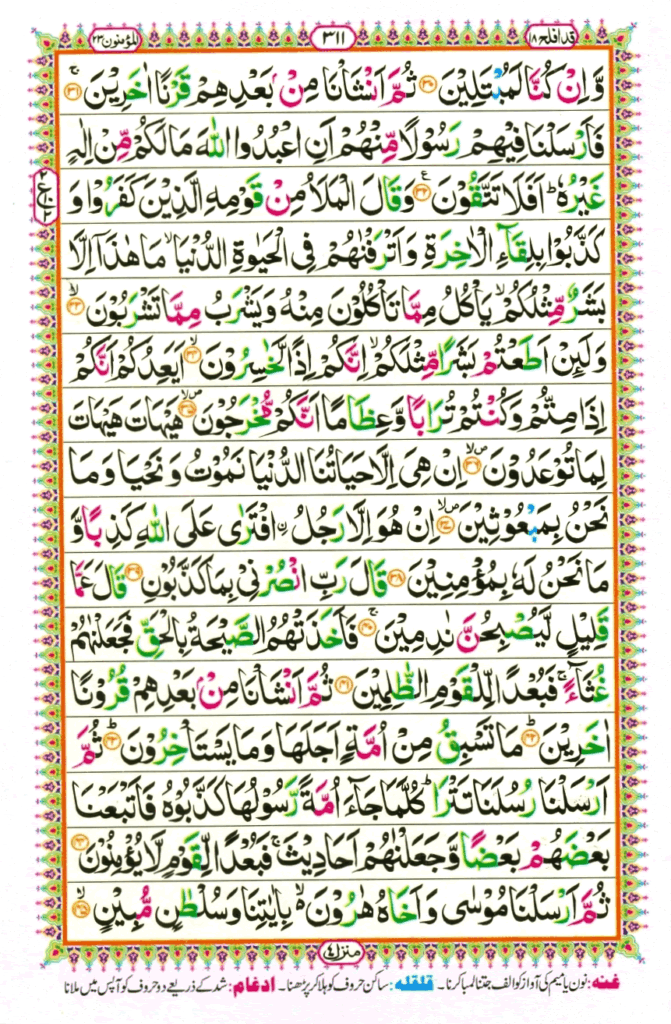 قد افلح ۱۸
۳۱۱
المؤمنون ۲۳
وَّاِنْ كُنَّا لَمُبْتَلِيْنَ ﴿۳۰﴾ ثُمَّ اَنْشَاْنَا مِنْۢ بَعْدِهِمْ قَرْنًا اٰخَرِيْنَ ۚ﴿۳۱﴾
فَاَرْسَلْنَا فِيْهِمْ رَسُوْلًا مِّنْهُمْ اَنِ اعْبُدُوا اللّٰهَ مَا لَكُمْ مِّنْ اِلٰهٍ
غَيْرُهٗ ؕ اَفَلَا تَتَّقُوْنَ ﴿۳۲﴾ ع وَقَالَ الْمَلَاُ مِنْ قَوْمِهِ الَّذِيْنَ كَفَرُوْا وَ
كَذَّبُوْا بِلِقَآءِ الْاٰخِرَةِ وَاَتْرَفْنٰهُمْ فِى الْحَيٰوةِ الدُّنْيَا ۙ مَا هٰذَاۤ اِلَّا
بَشَرٌ مِّثْلُكُمْ ۙ يَاْكُلُ مِمَّا تَاْكُلُوْنَ مِنْهُ وَيَشْرَبُ مِمَّا تَشْرَبُوْنَ ۙ﴿۳۳﴾
وَلَئِنْ اَطَعْتُمْ بَشَرًا مِّثْلَكُمْ ۙ اِنَّكُمْ اِذًا لَّخٰسِرُوْنَ ۙ﴿۳۴﴾ اَيَعِدُكُمْ اَنَّكُمْ
اِذَا مِتُّمْ وَكُنْتُمْ تُرَابًا وَّعِظَامًا اَنَّكُمْ مُّخْرَجُوْنَ ۙ﴿۳۵﴾ هَيْهَاتَ هَيْهَاتَ
لِمَا تُوْعَدُوْنَ ۙ﴿۳۶﴾ اِنْ هِىَ اِلَّا حَيَاتُنَا الدُّنْيَا نَمُوْتُ وَنَحْيَا وَمَا
نَحْنُ بِمَبْعُوْثِيْنَ ۙ﴿۳۷﴾ اِنْ هُوَ اِلَّا رَجُلُ ۨافْتَرٰى عَلَى اللّٰهِ كَذِبًا وَّ
مَا نَحْنُ لَهٗ بِمُؤْمِنِيْنَ ﴿۳۸﴾ قَالَ رَبِّ انْصُرْنِىْ بِمَا كَذَّبُوْنِ ﴿۳۹﴾ قَالَ عَمَّا
قَلِيْلٍ لَّيُصْبِحُنَّ نٰدِمِيْنَ ۚ﴿۴۰﴾ فَاَخَذَتْهُمُ الصَّيْحَةُ بِالْحَقِّ فَجَعَلْنٰهُمْ
غُثَآءً ۚ فَبُعْدًا لِّلْقَوْمِ الظّٰلِمِيْنَ ﴿۴۱﴾ ثُمَّ اَنْشَاْنَا مِنْۢ بَعْدِهِمْ قُرُوْنًا
اٰخَرِيْنَ ؕ﴿۴۲﴾ مَا تَسْبِقُ مِنْ اُمَّةٍ اَجَلَهَا وَمَا يَسْتَاْخِرُوْنَ ؕ﴿۴۳﴾ ثُمَّ
اَرْسَلْنَا رُسُلَنَا تَتْرَا ؕ كُلَّمَا جَآءَ اُمَّةً رَّسُوْلُهَا كَذَّبُوْهُ فَاَتْبَعْنَا
بَعْضَهُمْ بَعْضًا وَّجَعَلْنٰهُمْ اَحَادِيْثَ ۚ فَبُعْدًا لِّقَوْمٍ لَّا يُؤْمِنُوْنَ ﴿۴۴﴾
ثُمَّ اَرْسَلْنَا مُوْسٰى وَاَخَاهُ هٰرُوْنَ ۙ۬ بِاٰيٰتِنَا وَسُلْطٰنٍ مُّبِيْنٍ ۙ﴿۴۵﴾
منزل ۴
غنہ: نون یا میم کی آواز کو الف جتنا لمبا کرنا۔ قلقلہ: ساکن حروف کو ہلا کر پڑھنا۔ ادغام: شد کے ذریعے دو حروف کو آپس میں ملانا